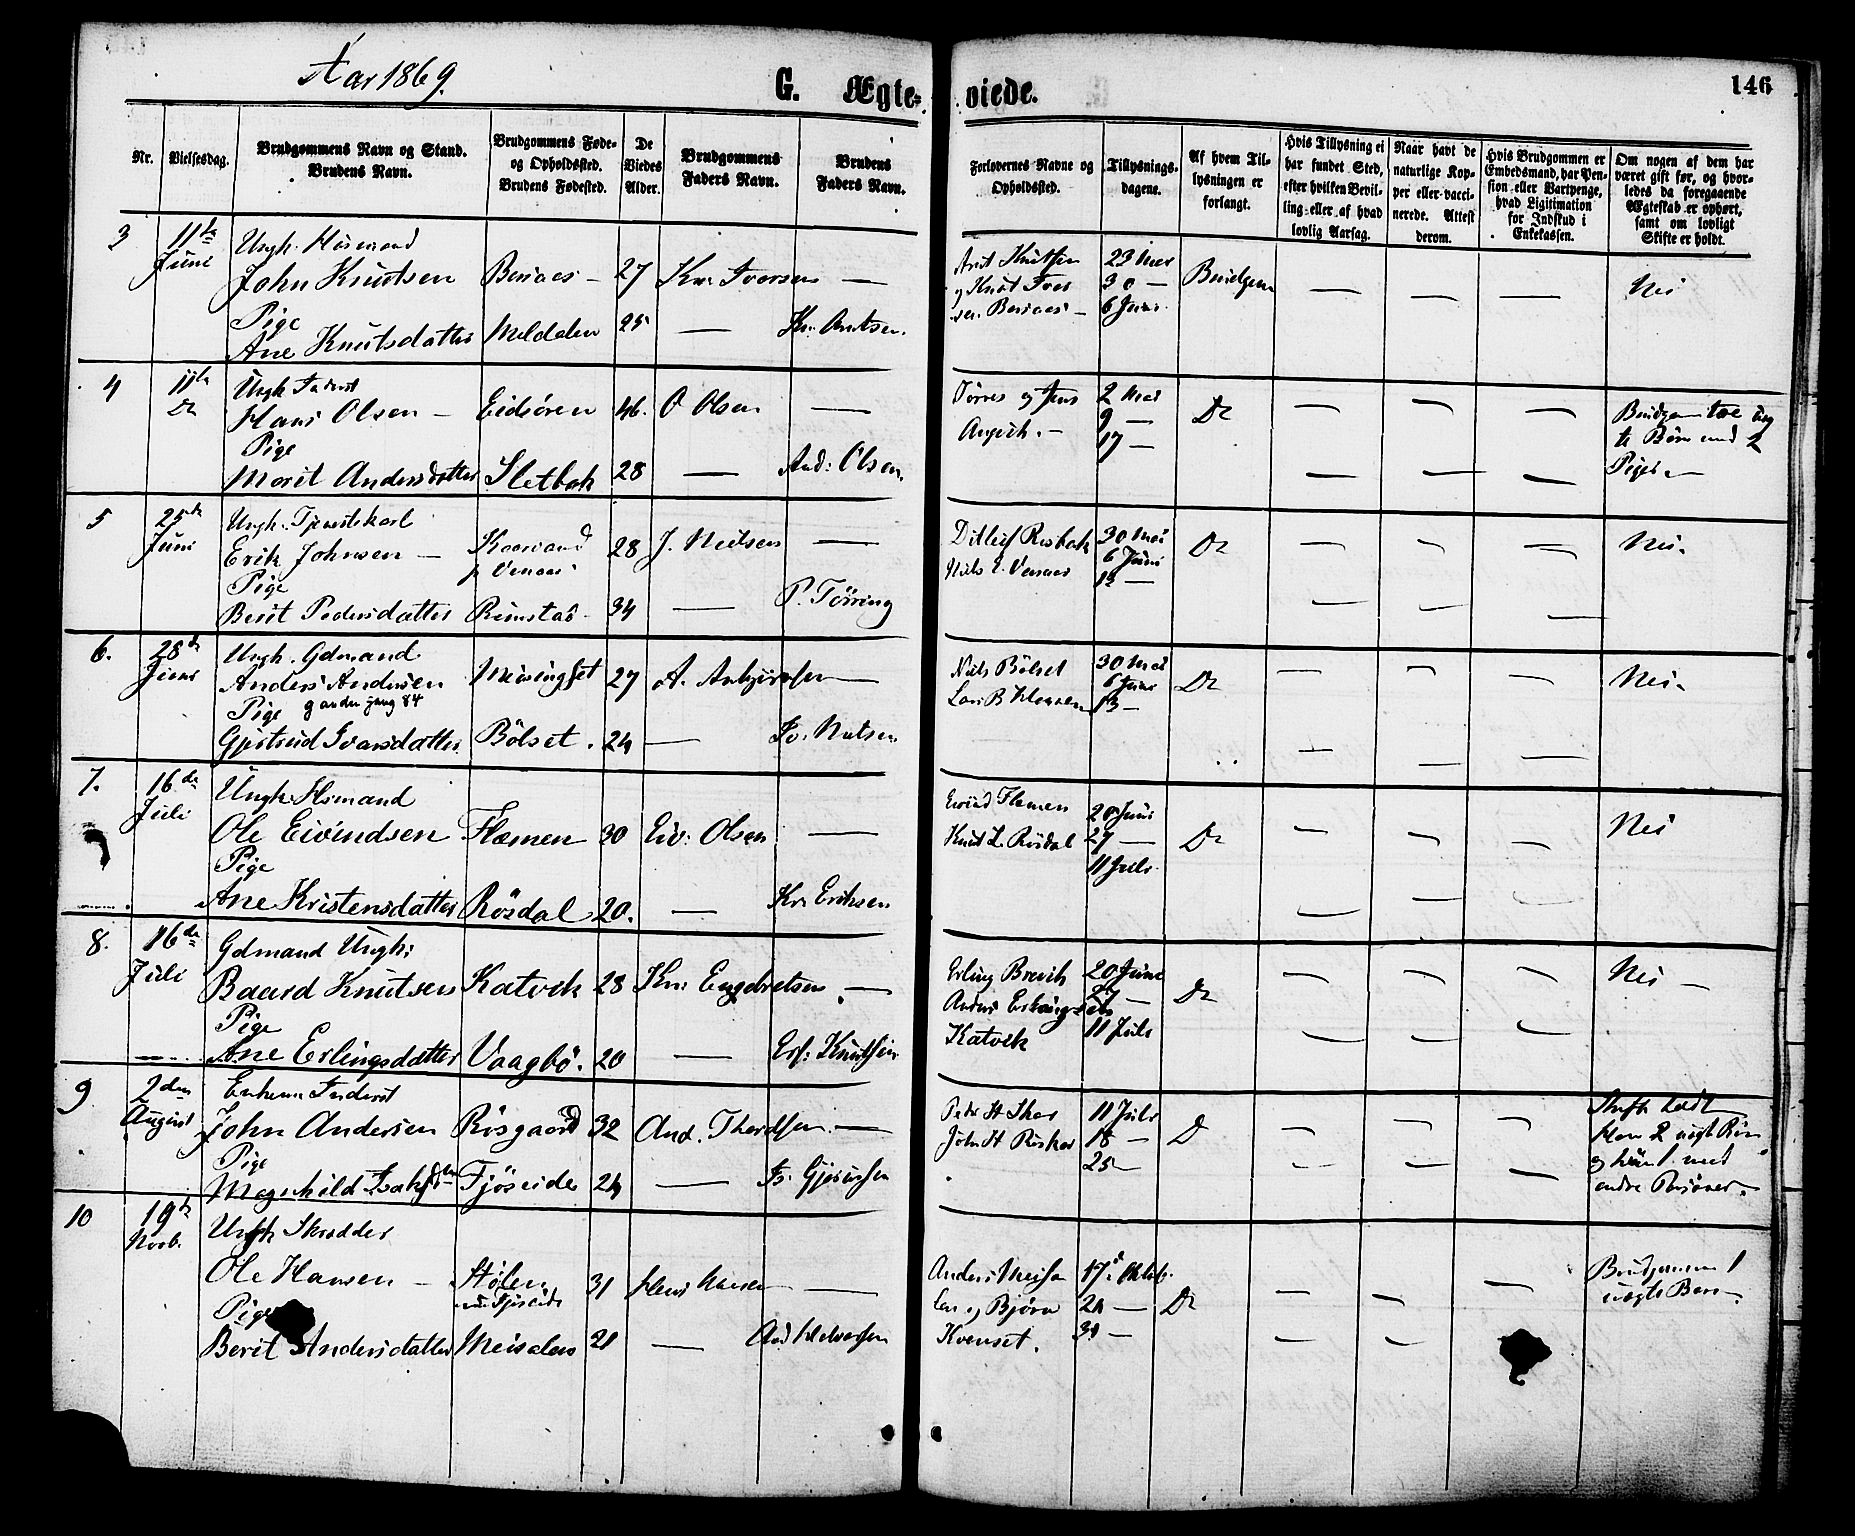 Aar 1869.
G. Ægte-viede.
146
Nr.
Vielsesdag.
Brudgommens Navn og Stand.
Brudens Navn.
Brudgommens Føde-
og Opholdssted.
Brudens Fødested.
De
Viedes
Alder.
Brudgommens
Faders Navn.
Brudens
Faders Navn.
Forlovernes Navne og
Opholdssted.
Tillysnings-
dagene.
Af hvem Til-
lysningen er
forlangt.
Hvis Tillysning ei
har fundet Sted,
efter hvilken Bevil-
ling eller af hvad
lovlig Aarsag.
Naar havt de
naturlige Kop-
per eller vacci-
nerede. Attest
derom.
Hvis Brudgommen er
Embedsmand, har Pen-
sion eller Vartpenge,
hvad Ligitimation
for Indskud i
Enkekassen.
Om nogen af dem har
været gift før, og hvor-
ledes da foregaaende
Ægteskab er ophørt,
samt om lovligt
Skifte er holdt.
3
11te
Juni
Ungk.
John Knutsen
27
Kn. Iversen —
Pige
Ane Knutsdatter
Meldalen
25
— Kn. Arntsen.
Arnt Knutsen
og Knut Iver
sen
23 Mai
30 —
6 Juni
Brudgom
— — —
Nei
4
11te
Do
Ungk. Inderst
Hans Olsen —
Eidsören
46.
O Olsen —
Pige
Marit Andersdatter
Sletbak
28
— And: Olsen.
og Jens
2 Mai
9 —
17 —
Do
— — —
Brudgom toe uæg
te Börn med 2
Piger —
5
25de
Juni
Ungk. Tjenestekarl
Erik Johnsen —
28
J. Nielsen —
Pige
Berit Pedersdatter
Rimstad
34
— P. Törring
Ditlef Risbak
Niels E.
30 Mai
6 Juni
13 —
Do
— — —
Nei.
6.
28de
Juni
Ungk. Gdmand
Anders Andersen
Meisingset
27
A. —
Pige
g anden gang 84
Gjertrud Ivarsdatter
Bölset.
24
— Iv. Nielsen
Niels Bölset
Lars B
30 Mai
6 Juni
13 —
Do
— — —
Nei.
7.
16de
Juli
Ungk.
Ole Eivindsen
Flæmen
30
Eiv: Olsen —
Pige
Ane Kristensdatter
Rösdal
20.
— Kr. Eriksen
Eivind Flemen
Knut L. Rösdal
20 Juni
27 —
11 Juli
Do
— — —
Nei
8.
16de
Juli
Gdmand Ungk:
Baard Knutsen
Katvek
28
Kn: Engebretsen —
Pige
Ane Erlingsdatter
Vaagbö.
20
— Erl: Knutsen
Erling Brevik
Anders
Katvek
20 Juni
27 —
11 Juli
Do
— — —
Nei —
9
2den
August
Enkem Inderst
John Andersen
Rösgaard
32
And. Thordsen. —
Pige
Magnhild Isaksdtr
Fjöseide
24
—
John H
11 Juli
18 —
25 —
D
— — —
Skifte holdt
og hun 1 med
andre Personer.
10
19de
Novb.
Ungk Skrædder
Ole Hansen —
Stölen
31
Hans Hansen —
Pige
Berit Andersdatter
Meisalen
21
— And Halvorsen
Anders
sen og Bjørn
Kvenset.
17de Oktob.
24 —
31 —
Do
— — —
Brudgommen 1
uægte Barn.